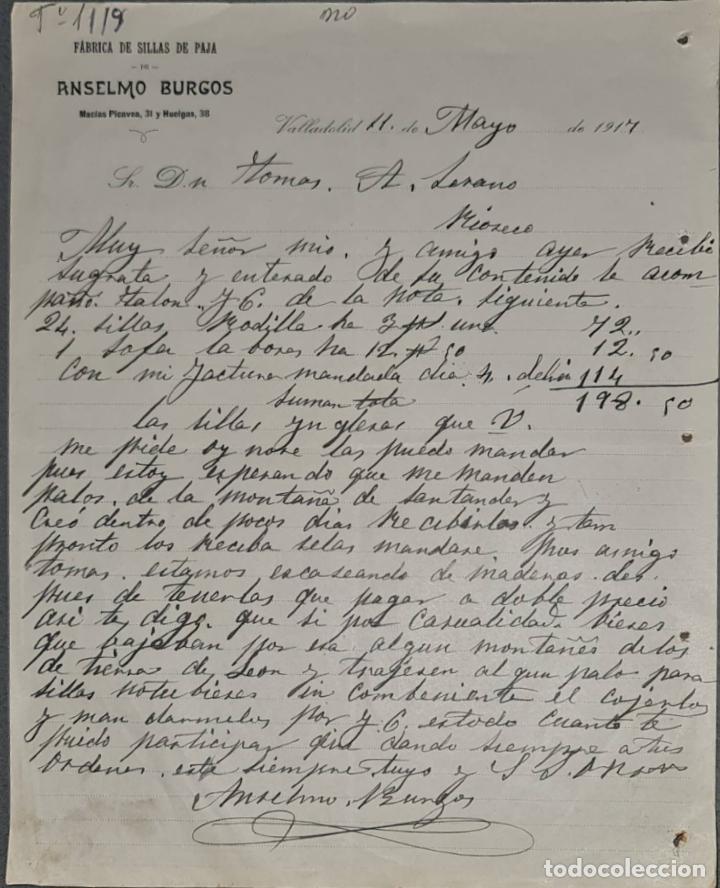 Tº 1119
no
FÁBRICA DE SILLAS DE PAJA
DE
ANSELMO BURGOS
Macías Picavea, 31 y Huelgas, 38
Valladolid 11 de Mayo de 1917
Sr. Dn Tomas. A. Serano
Rioseco
Muy señor mio. y amigo ayer Recibi
sugrata y enterado de su contenido le acom
paño. talon. y C. de la Nota. siguiente.
24. sillas. Rodilla ha 3 una 72..
1 Sofa la bores ha 12. 50 12. 50
Con mi factura mandada dia 4. debia 114
suman tota 198. 50
las sillas ynglesas que V.
me pide oy nose las puedo mandar
pues estoy esperando que me manden
palos. de la montaña de santander y
Creó dentro de pocos dias Recibirlos. y tam
pronto los Reciba selas mandare. Pues amigo
tomas. estamos escaseando de maderas. des
pues de tenerlas que pagar a doble precio
asi te digo. que si por casualidad. bieses
que bajaban por esa algun montañes delos
de tierras de Leon y trajesen algun palos para
sillas notubieses in combeniente el cojerlos
y man darmelos por y C. estodo cuanto te
puedo participar que dando siempre a tus
ordenes. este siempre tuyo y S. S.
Anselmo. Burgos
todocoleccion